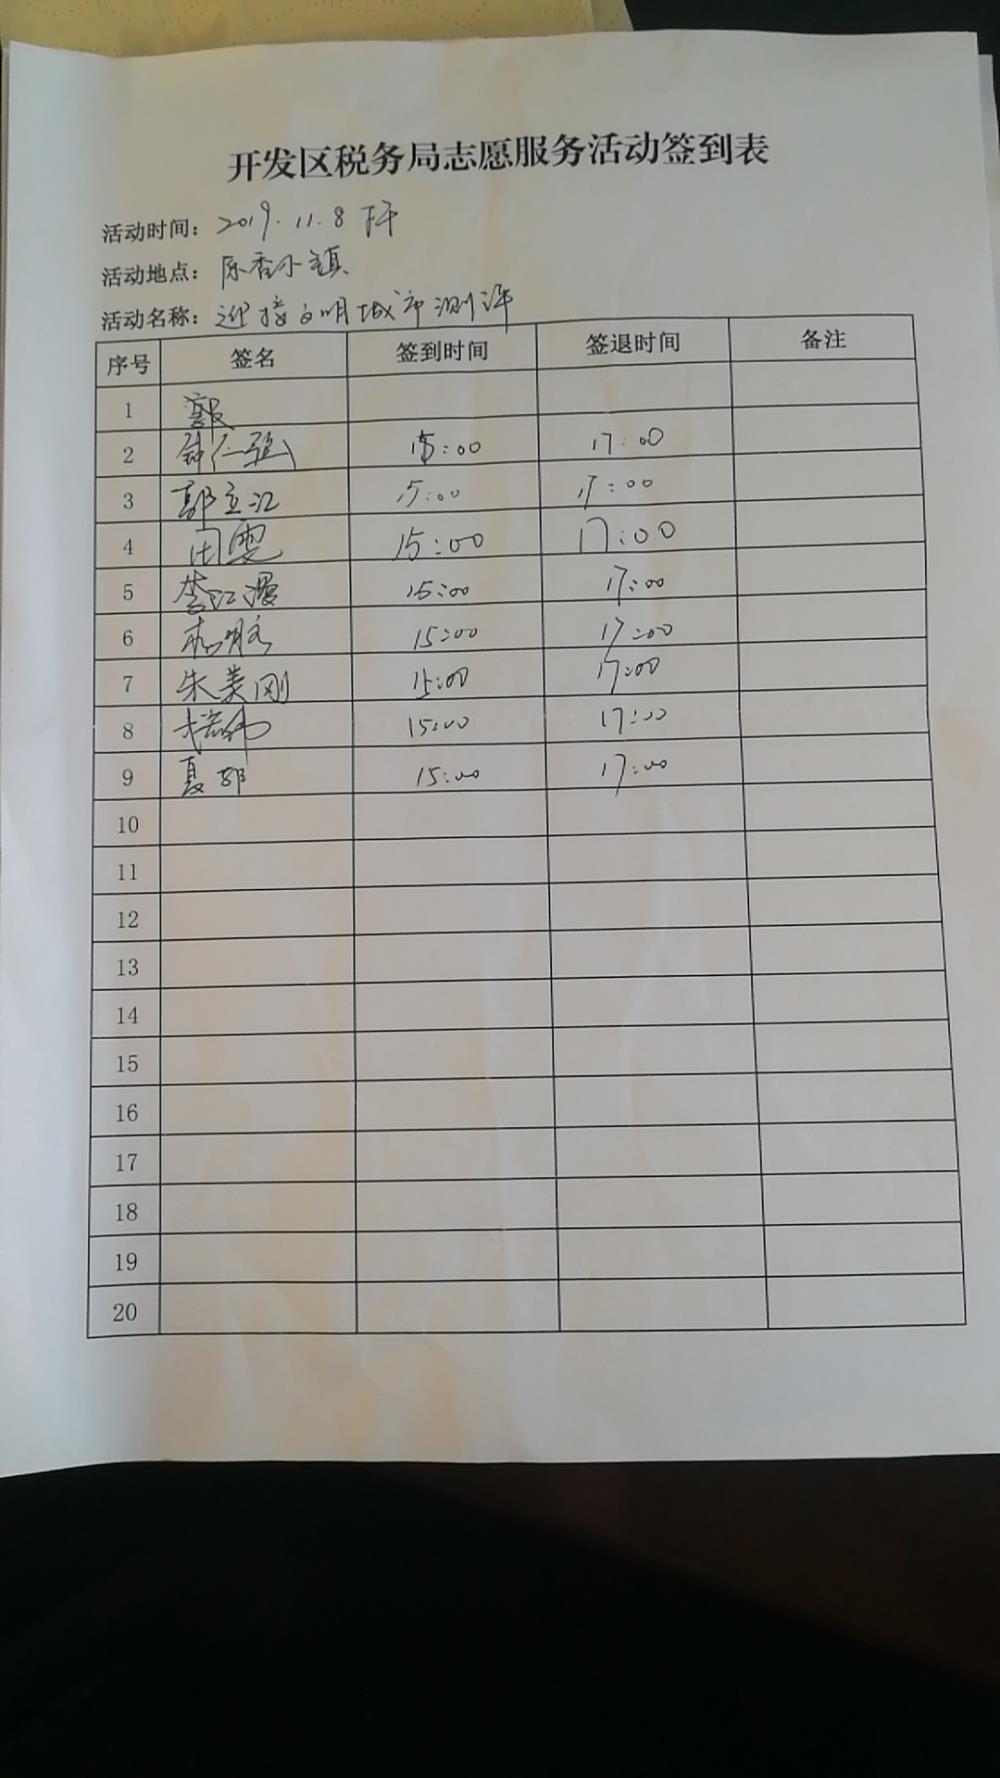 开发区税务局志愿服务活动签到表
活动时间：2019.11.8 下午
活动地点：香小镇
活动名称：迎接文明城市测评
序号 签名 签到时间 签退时间 备注
1
2 钟仁强 15:00 17:00
3 郭立江 15:00 17:00
4 田雯 15:00 17:00
5 李江漫 15:00 17:00
6 15:00 17:00
7 朱美刚 15:00 17:00
8 15:00 17:00
9 夏郁 15:00 17:00
10
11
12
13
14
15
16
17
18
19
20